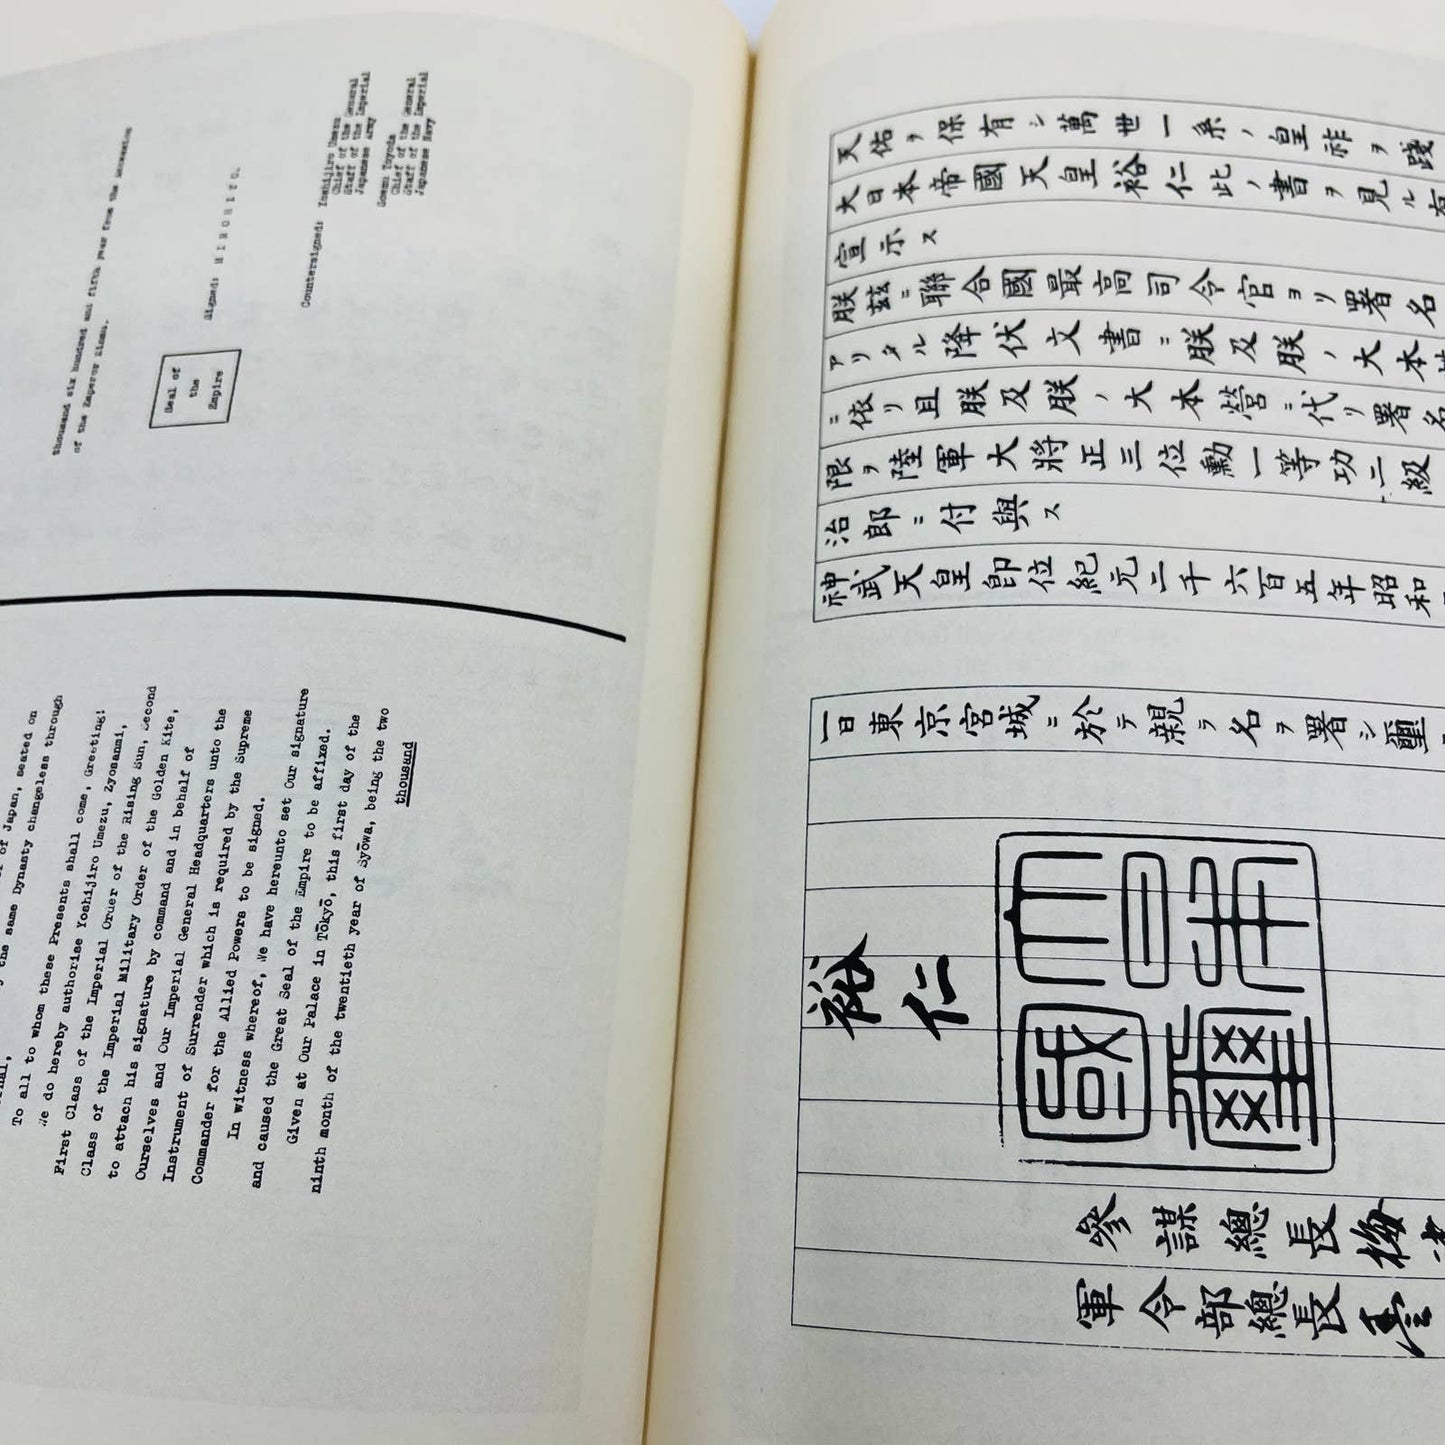 of Japan, seated on
the same Dynasty changeless through
To all to whom these Presents shall come, Greeting!
We do hereby authorise Yoshijiro Umezu, Zyosanmi,
First Class of the Imperial Order of the Rising Sun, Second
Class of the Imperial Military Order of the Golden Kite,
to attach his signature by command and in behalf of
Ourselves and Our Imperial General Headquarters unto the
Instrument of Surrender which is required by the Supreme
Commander for the Allied Powers to be signed.
In witness whereof, We have hereunto set Our signature
and caused the Great Seal of the Empire to be affixed.
Given at Our Palace in Tōkyō, this first day of the
ninth month of the twentieth year of Syōwa, being the two
thousand
thousand six hundred and fifth year from the Accession
of the Emperor Zinmu.
Seal of
the
Empire
Signed: HIROHITO.
Countersigned: Yoshijiro Umezu
Chief of the General
Staff of the Imperial
Japanese Army
Soemu Toyoda
Chief of the General
Staff of the Imperial
Japanese Navy
天佑ヲ保有シ萬世一系ノ皇祚ヲ踐
大日本帝國天皇裕仁此ノ書ヲ見ル有
宣示ス
朕茲ニ聯合國最高司令官ヨリ署名
アリタル降伏文書ニ朕及朕ノ大本
ニ依リ且朕及朕ノ大本營ニ代リ署名
限ヲ陸軍大將正三位勳一等功二級
治郎ニ付與ス
神武天皇卽位紀元二千六百五年昭和
一日東京宮城ニ於テ親ラ名ヲ署シ璽
裕仁
大日本國璽
參謀總長梅
軍令部總長豊